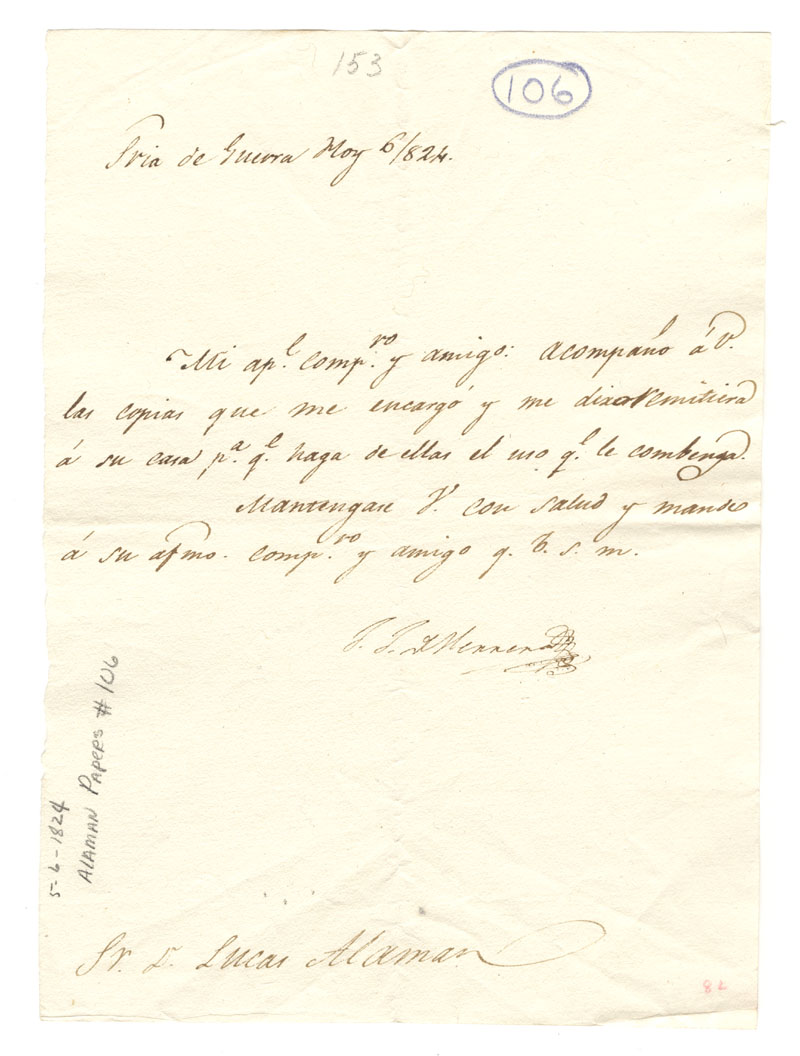 153
106
Sria de Guerra Hoy 6/824.
Mi ap.l comp.ro y amigo: acompaño á V.
las copias que me encargó y me dixo remitiera
á su casa p.a q.e haga de ellas el uso q.e le combenga.
Mantengase V. con salud y mande
á su afmo. comp.ro y amigo q. b. s. m.
J. J. d Herrera
5-6-1824
ALAMAN PAPERS # 106
Sr. D. Lucas Alaman